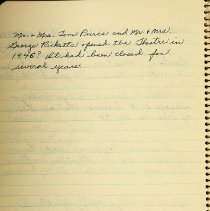 Mr. & Mrs. Tom Pierce and Mr. & Mrs.
George Ricketts opened the Theatre in
1946? It had been closed for
several years